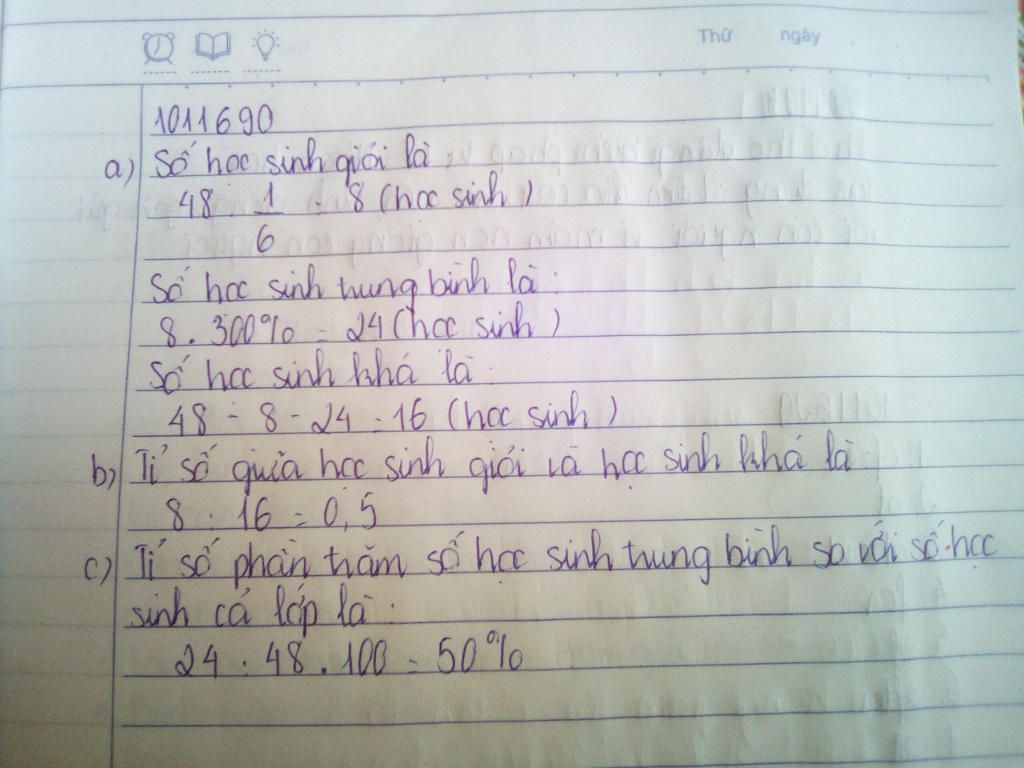 Thứ ngày
1011690
a) Số học sinh giỏi là:
48 . 1/6 = 8 (học sinh)
Số học sinh trung bình là:
8 . 300% = 24 (học sinh)
Số học sinh khá là:
48 - 8 - 24 = 16 (học sinh)
b) Tỉ số giữa học sinh giỏi và học sinh khá là
8 : 16 = 0,5
c) Tỉ số phần trăm số học sinh trung bình so với số học
sinh cả lớp là:
24 : 48 . 100 = 50%